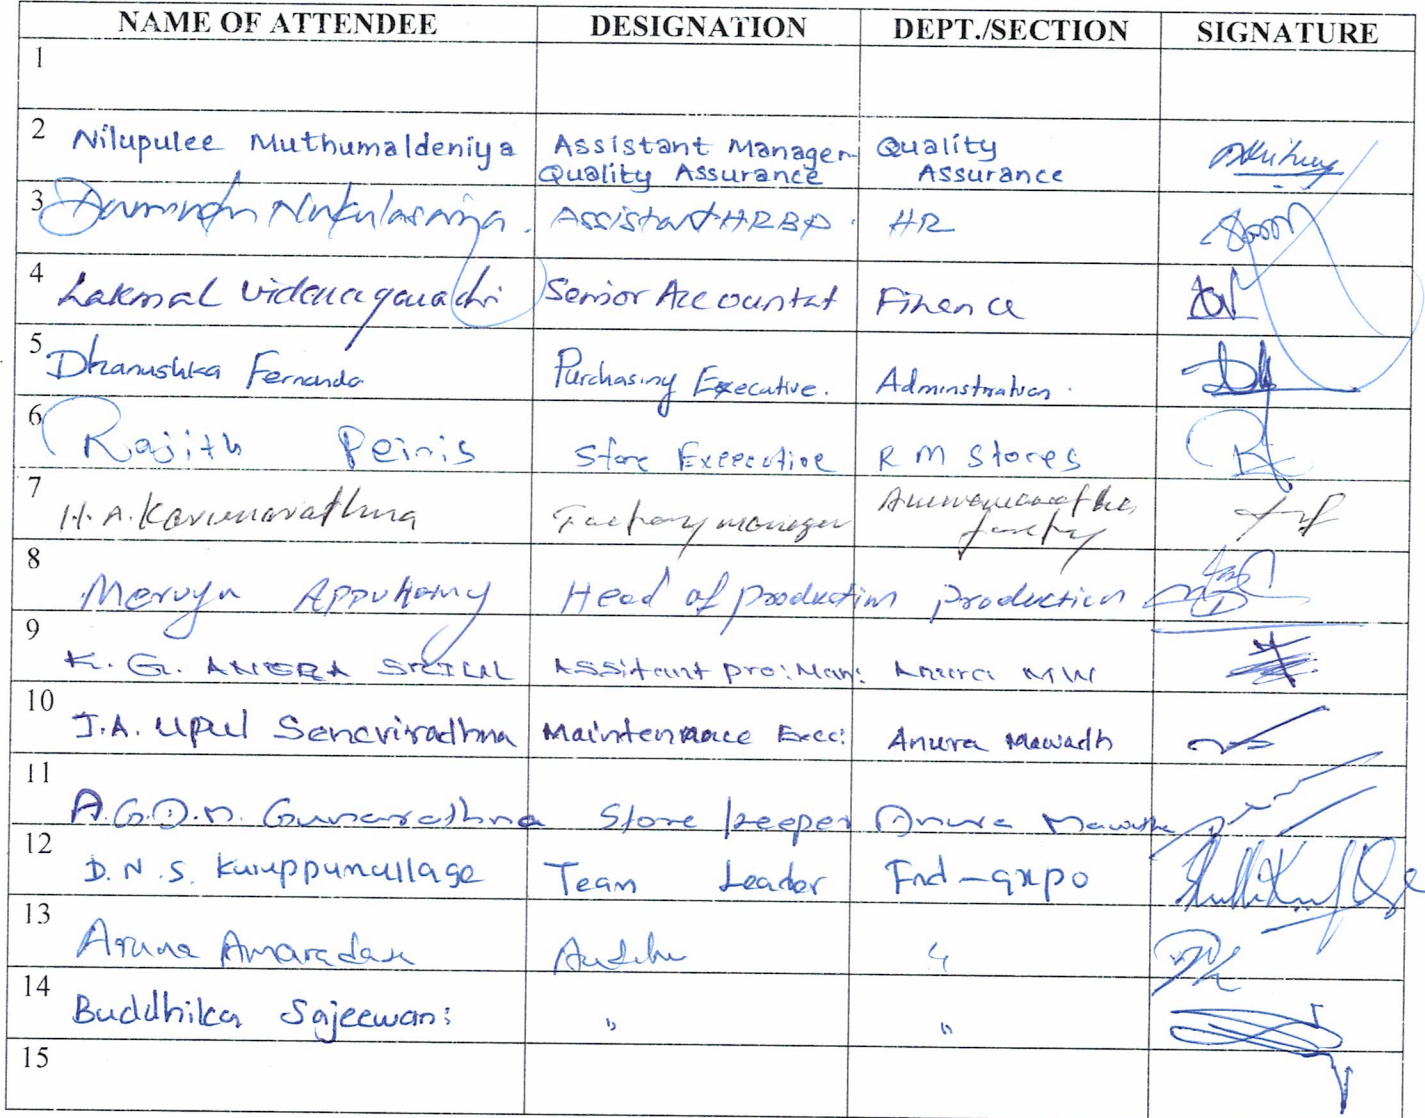 NAME OF ATTENDEE DESIGNATION DEPT./SECTION SIGNATURE
1
2 Nilupulee Muthumaldeniya Assistant Manager Quality
Quality Assurance Assurance
3 Assistant HRBP. HR
4 Lakmal Vidanagamachi Senior Accountat Finence
5 Dhanushka Fernando Purchasing Executive. Adminstration.
6 Rajith Peiris Store Execcutive R M Stores
7 H.A. Karunarathna Factory manager
8 Mervyn Appuhamy Head of production production
9 K. G. Assitant pro: Man: Anura MW
10 J.A. Upul Seneviradhna Maintennace Exec: Anura Mawadh
11 A.G.D.N. Gunarathna Store keeper Anura
12 D.N.S. Kuruppumullage Team Leader
13 Aruna Amaradasa
14 Buddhika Sajeewani " "
15